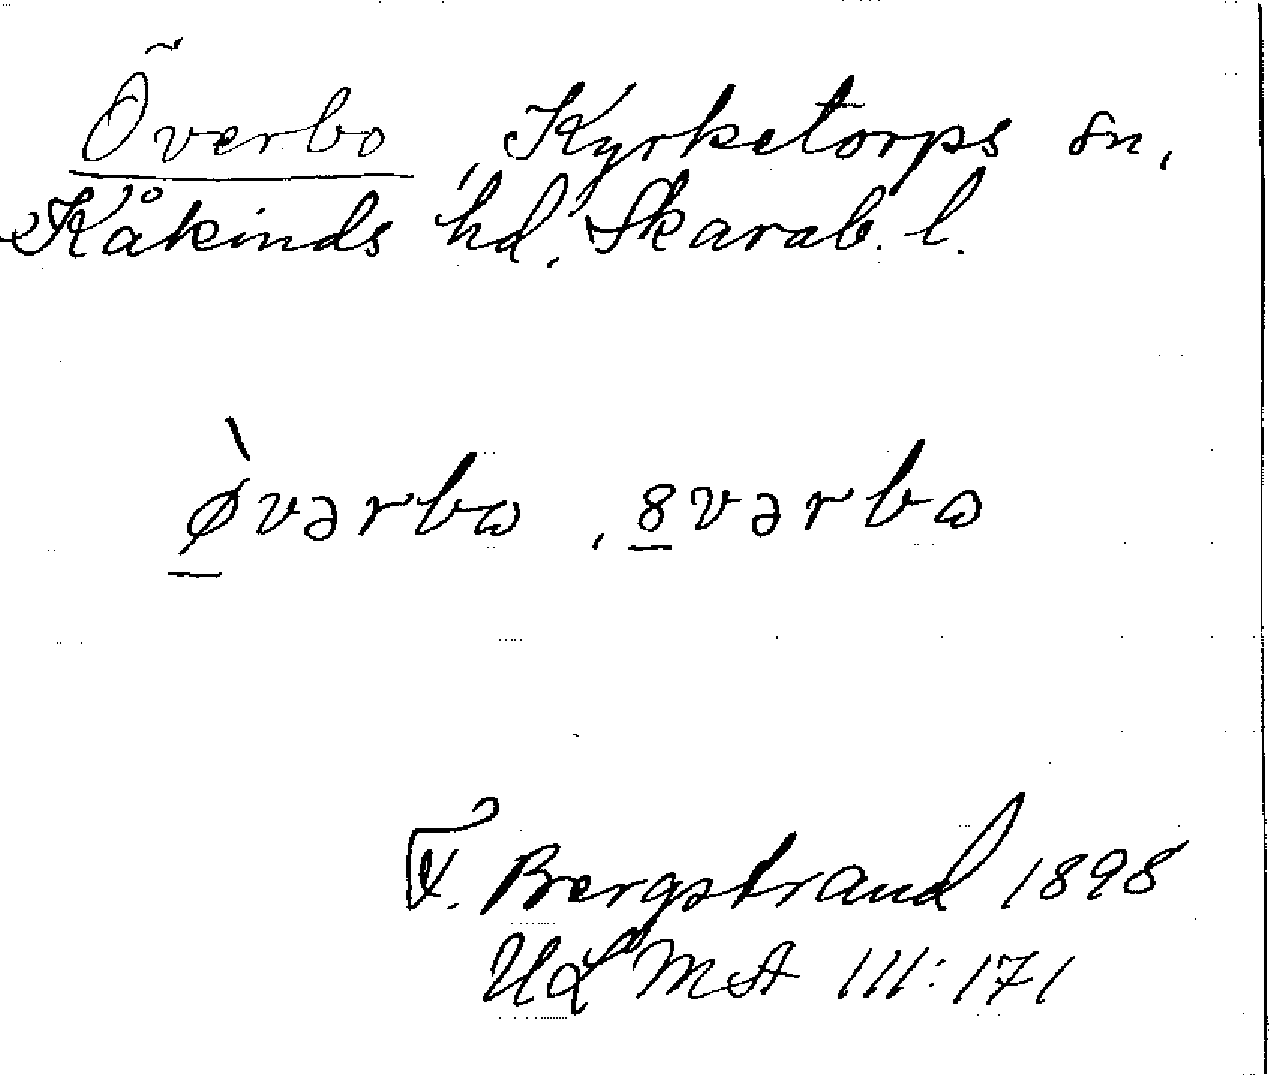 Överbo, Kyrketorps sn,
Kåkinds hd, Skarab. l.
ø̱̀vərbω, 8̱vərbω
F. Bergstrand 1898
ULMA 111:171